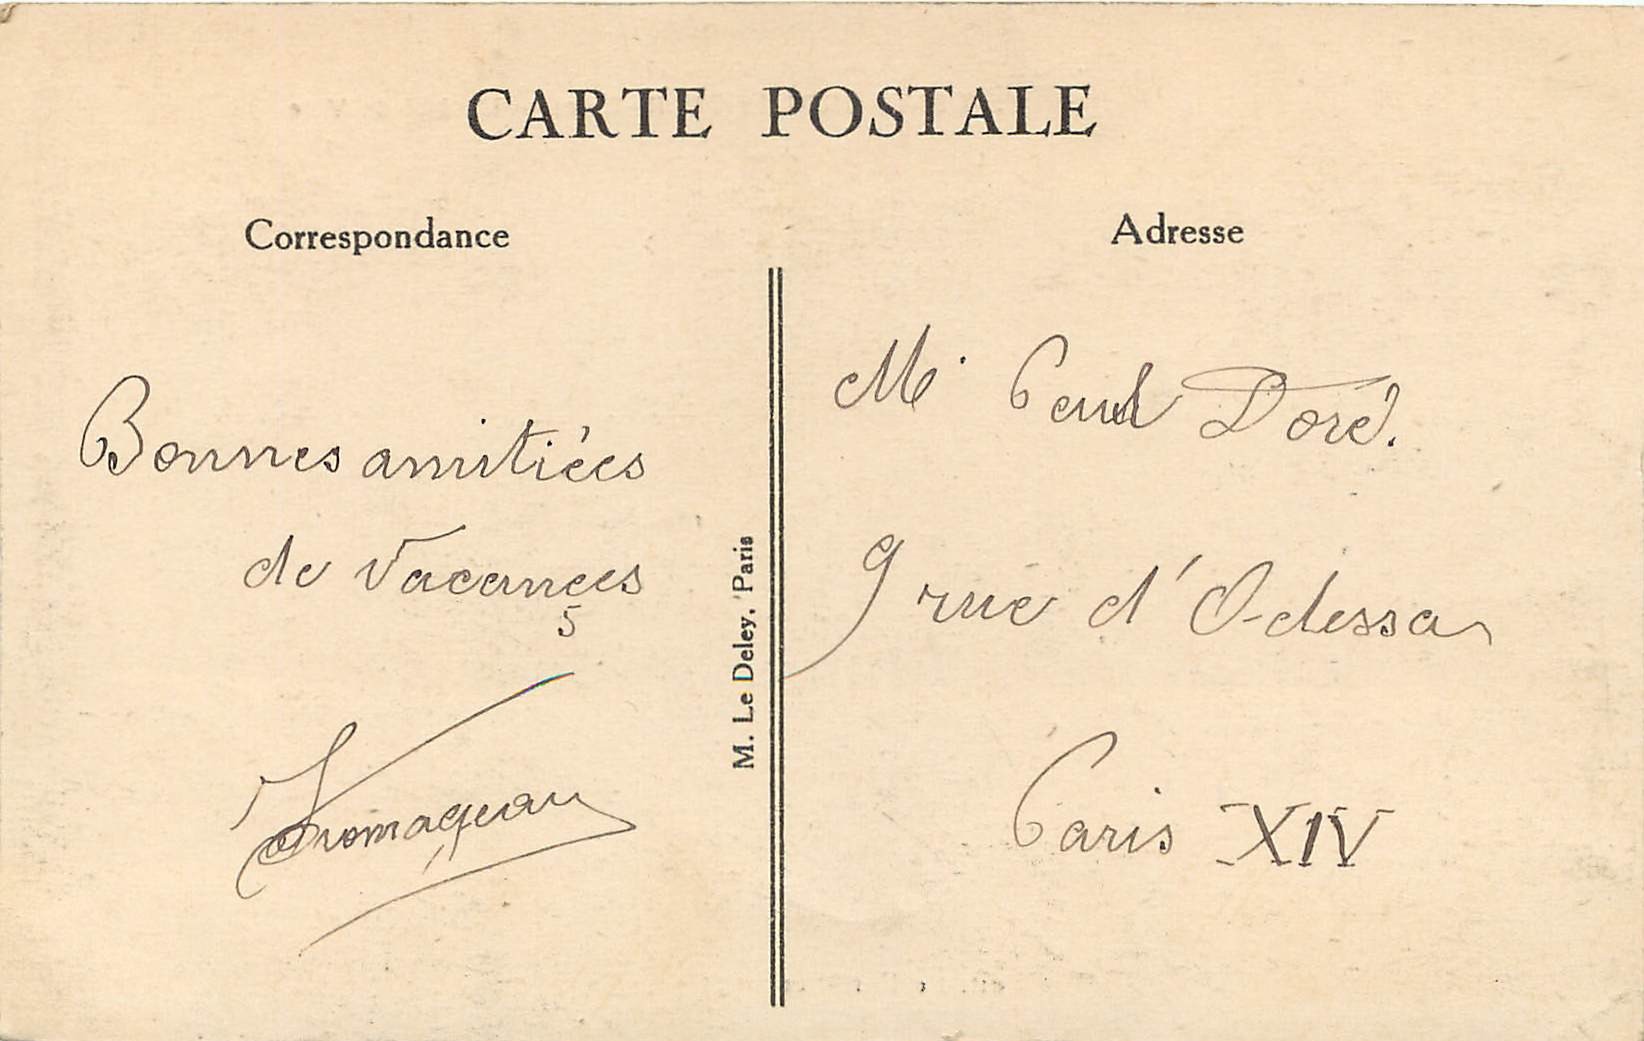 CARTE POSTALE
Correspondance
Bonnes amitiées
de Vacances
5
Fromageau
M. Le Deley, Paris
Adresse
Mr Paul Doré.
9 rue d'Odessa
Paris XIV